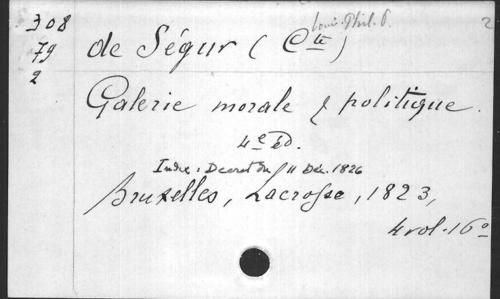 Louis Phil. P.
2
308
79
2
de Ségur (Cte)
Galerie morale & politique.
4e éd.
Index : Decret du 11 Déc. 1826
Bruxelles, Lacrosse, 1823,
4 vol. 16o